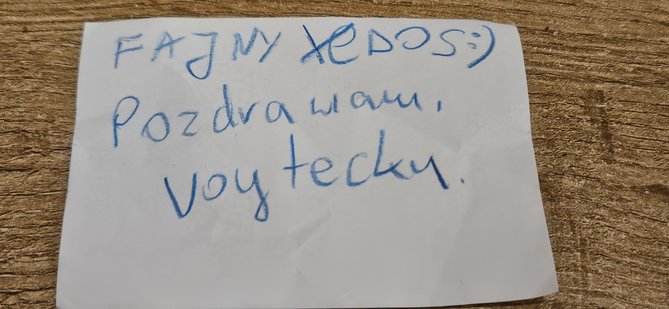 FAJNY XEDOS:)
Pozdrawiam,
Voytecky.